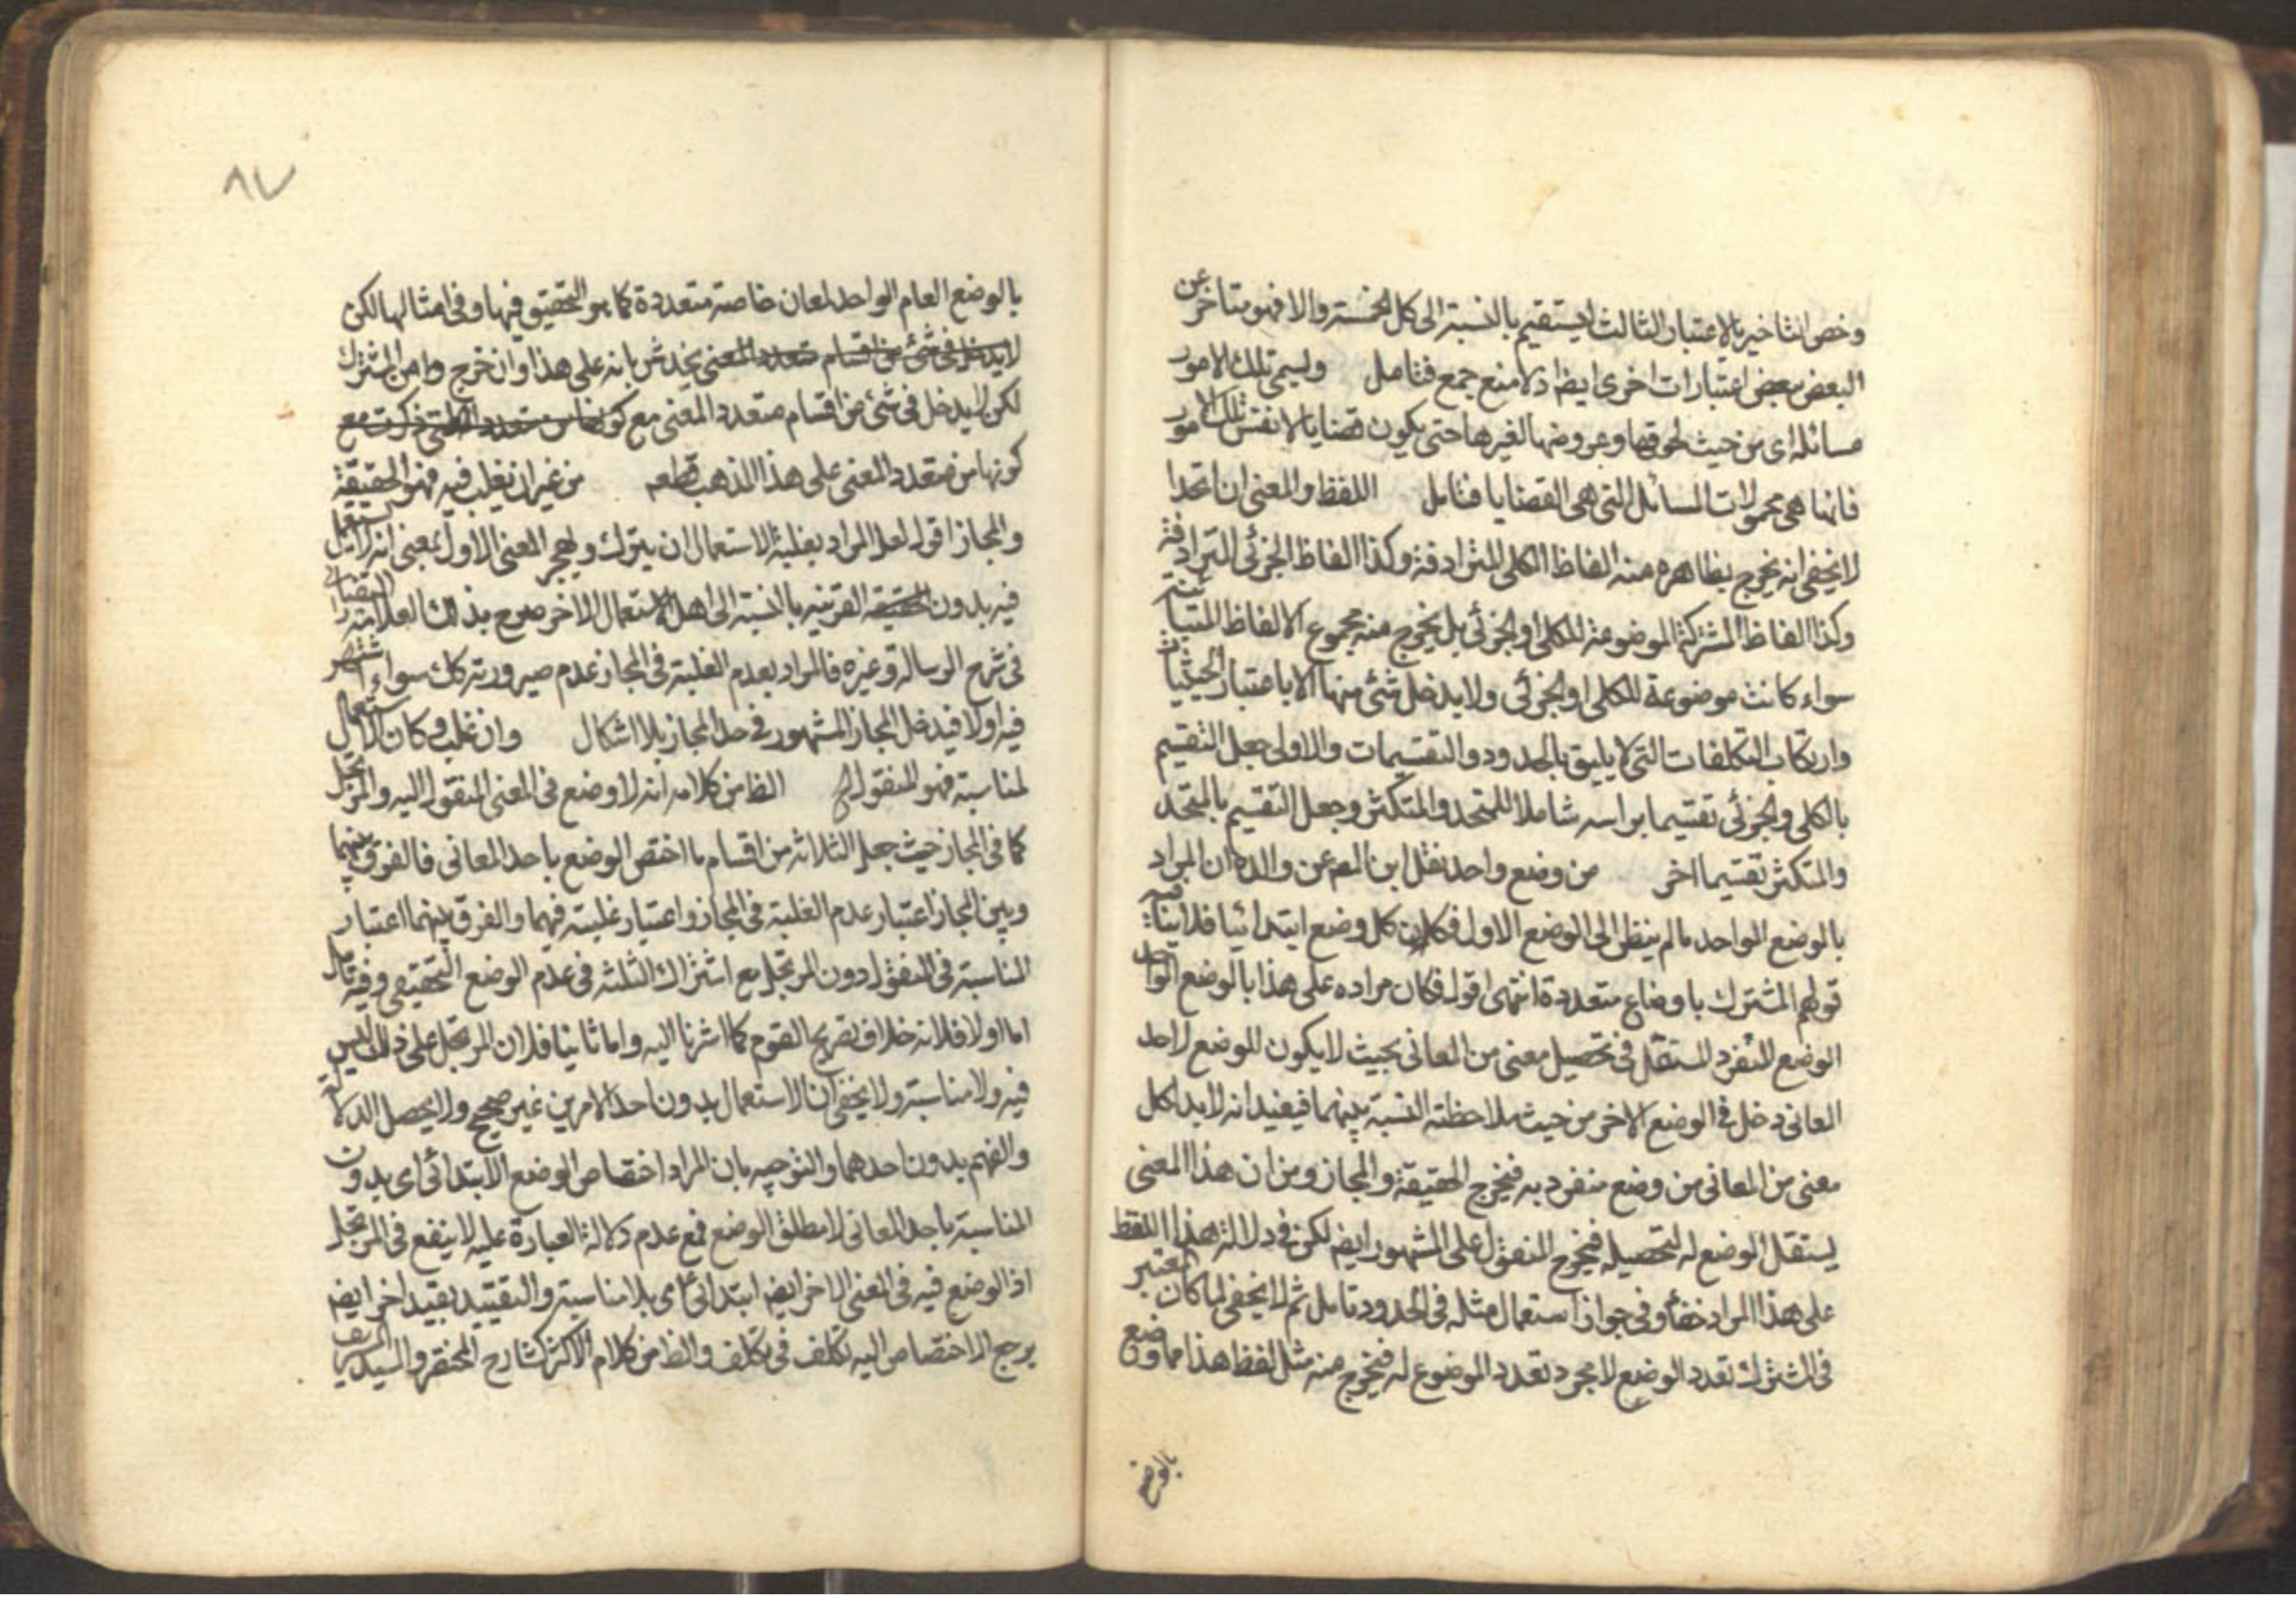 وخص التاخير بالاعتبار الثالث ليستقيم بالنسبة الى كل الخمسة والا فهو متاخر عن
البعض ببعض اعتبارات اخرى ايضا اذ لا منع جمع فتامل وليسمى تلك الامور
مسائله اى من حيث لحوقها وعروضها لغيرها حتى يكون قضايا لا نفس تلك الامور
فانها هى محمولات المسائل التى هى القضايا فتامل اللفظ والمعنى ان اتحدا
لا يخفى انه يخرج بظاهره منه الفاظ الكلى المترادفة وكذا الفاظ الجزئى المترادفة
وكذا الفاظ المشتركة الموضوعة للكلى او الجزئى بل يخرج منه مجموع الالفاظ المتباينة
سواء كانت موضوعة للكلى او الجزئى ولا يدخل شئ منها الا باعتبار الحيثيات
وارتكاب التكلفات التى لا يليق بالحدود والتقسيمات والاولى جعل التقسيم
بالكلى والجزئى تقسيما براسه شاملا للمتحد والمتكثر وجعل التقسيم بالمتحد
والمتكثر تقسيما اخر من وضع واحد نقل ابن المص عن والده ان المراد
بالوضع الواحد ما لم ينظر الى الوضع الاول فكان كل وضع ابتدائيا فلا ينافيه
قولهم المشترك باوضاع متعددة انتهى اقول فكان مراده على هذا بالوضع الواحد
الوضع المنفرد المستقل فى تحصيل معنى من المعانى بحيث لا يكون للوضع لاحد
المعانى دخل فى الوضع الاخر من حيث ملاحظته النسبة بينهما فيفيد انه لا بد لكل
معنى من المعانى من وضع منفرد به فيخرج الحقيقة والمجاز ومن ان هذا المعنى
يستقل الوضع له لتحصيله فيخرج المنقول على المشهور ايضا لكن فى دلالة هذا اللفظ
على هذا المراد خفاء وفى جواز استعمال مثله فى الحدود تامل ثم لا يخفى لما كان المعتبر
فى المشترك تعدد الوضع لا مجرد تعدد الموضوع له فيخرج منه مثل لفظ هذا مما وضع
بالوضع
٨٧
بالوضع العام الواحد لمعان خاصة متعددة كما هو التحقيق فيها وفى امثالها لكن
لا يدخل فى شئ من اقسام متعدد المعنى يخدش بانه على هذا وان خرج من المشترك
لكن لا يدخل فى شئ من اقسام متعدد المعنى مع
كونها من متعدد المعنى على هذا المذهب قطعه من غير ان يغلب فيه فهو الحقيقة
والمجاز اقول لعل المراد بغلبة الاستعمال ان يترك ويهجر المعنى الاول بمعنى انه لا يستعمل
فيه بدون القرينه بالنسبة الى اهل الاستعمال الاخر صرح بذلك العلامة التفتازانى
فى شرح الرسالة وغيره فالمراد بعدم الغلبة فى المجاز عدم صيرورته كك سواء اشتهر
فيه اولا فيدخل المجاز المشهور فى حد المجاز بلا اشكال وان غلب وكان الاستعمال
لمناسبة فهو المنقول الخ الظ من كلامه انه لا وضع فى المعنى المنقول اليه والمرتجل
كما فى المجاز حيث جعل الثلاثه من اقسام ما اختص الوضع باحد المعانى فالفرق بينهما
وبين المجاز اعتبار عدم الغلبة فى المجاز واعتبار غلبته فيهما والفرق بينهما اعتبار
المناسبة فى المنقول دون المرتجل مع اشتراك الثلثه فى عدم الوضع التحقيقى وفيه تامل
اما اولا فلانه خلاف تصريح القوم كما اشرنا اليه واما ثانيا فلان المرتجل على ذلك ليس
فيه ولا مناسبة ولا يخفى ان الاستعمال بدون احد الامرين غير صحيح ولا يحصل الدلالة
والفهم بدون احدهما والتوجيه بان المراد اختصاص الوضع الابتدائى اى بدون
المناسبة باحد المعانى لا مطلق الوضع فمع عدم دلالة العبارة عليه لا ينفع فى المرتجل
اذ الوضع فيه فى المعنى الاخر ايضا ابتدائى اى بلا مناسبة والتقييد بقيد اخر ايضا
يرجح الاختصاص اليه تكلف فى تكلف والظ من كلام الاكثر كشارح المختصر والسيد الشريف